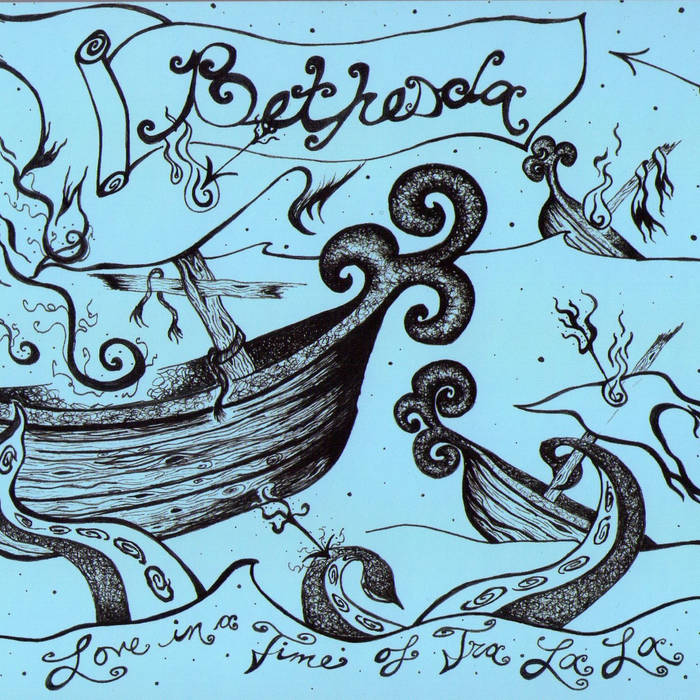 Bethesda
Love in a Time of Tra La La